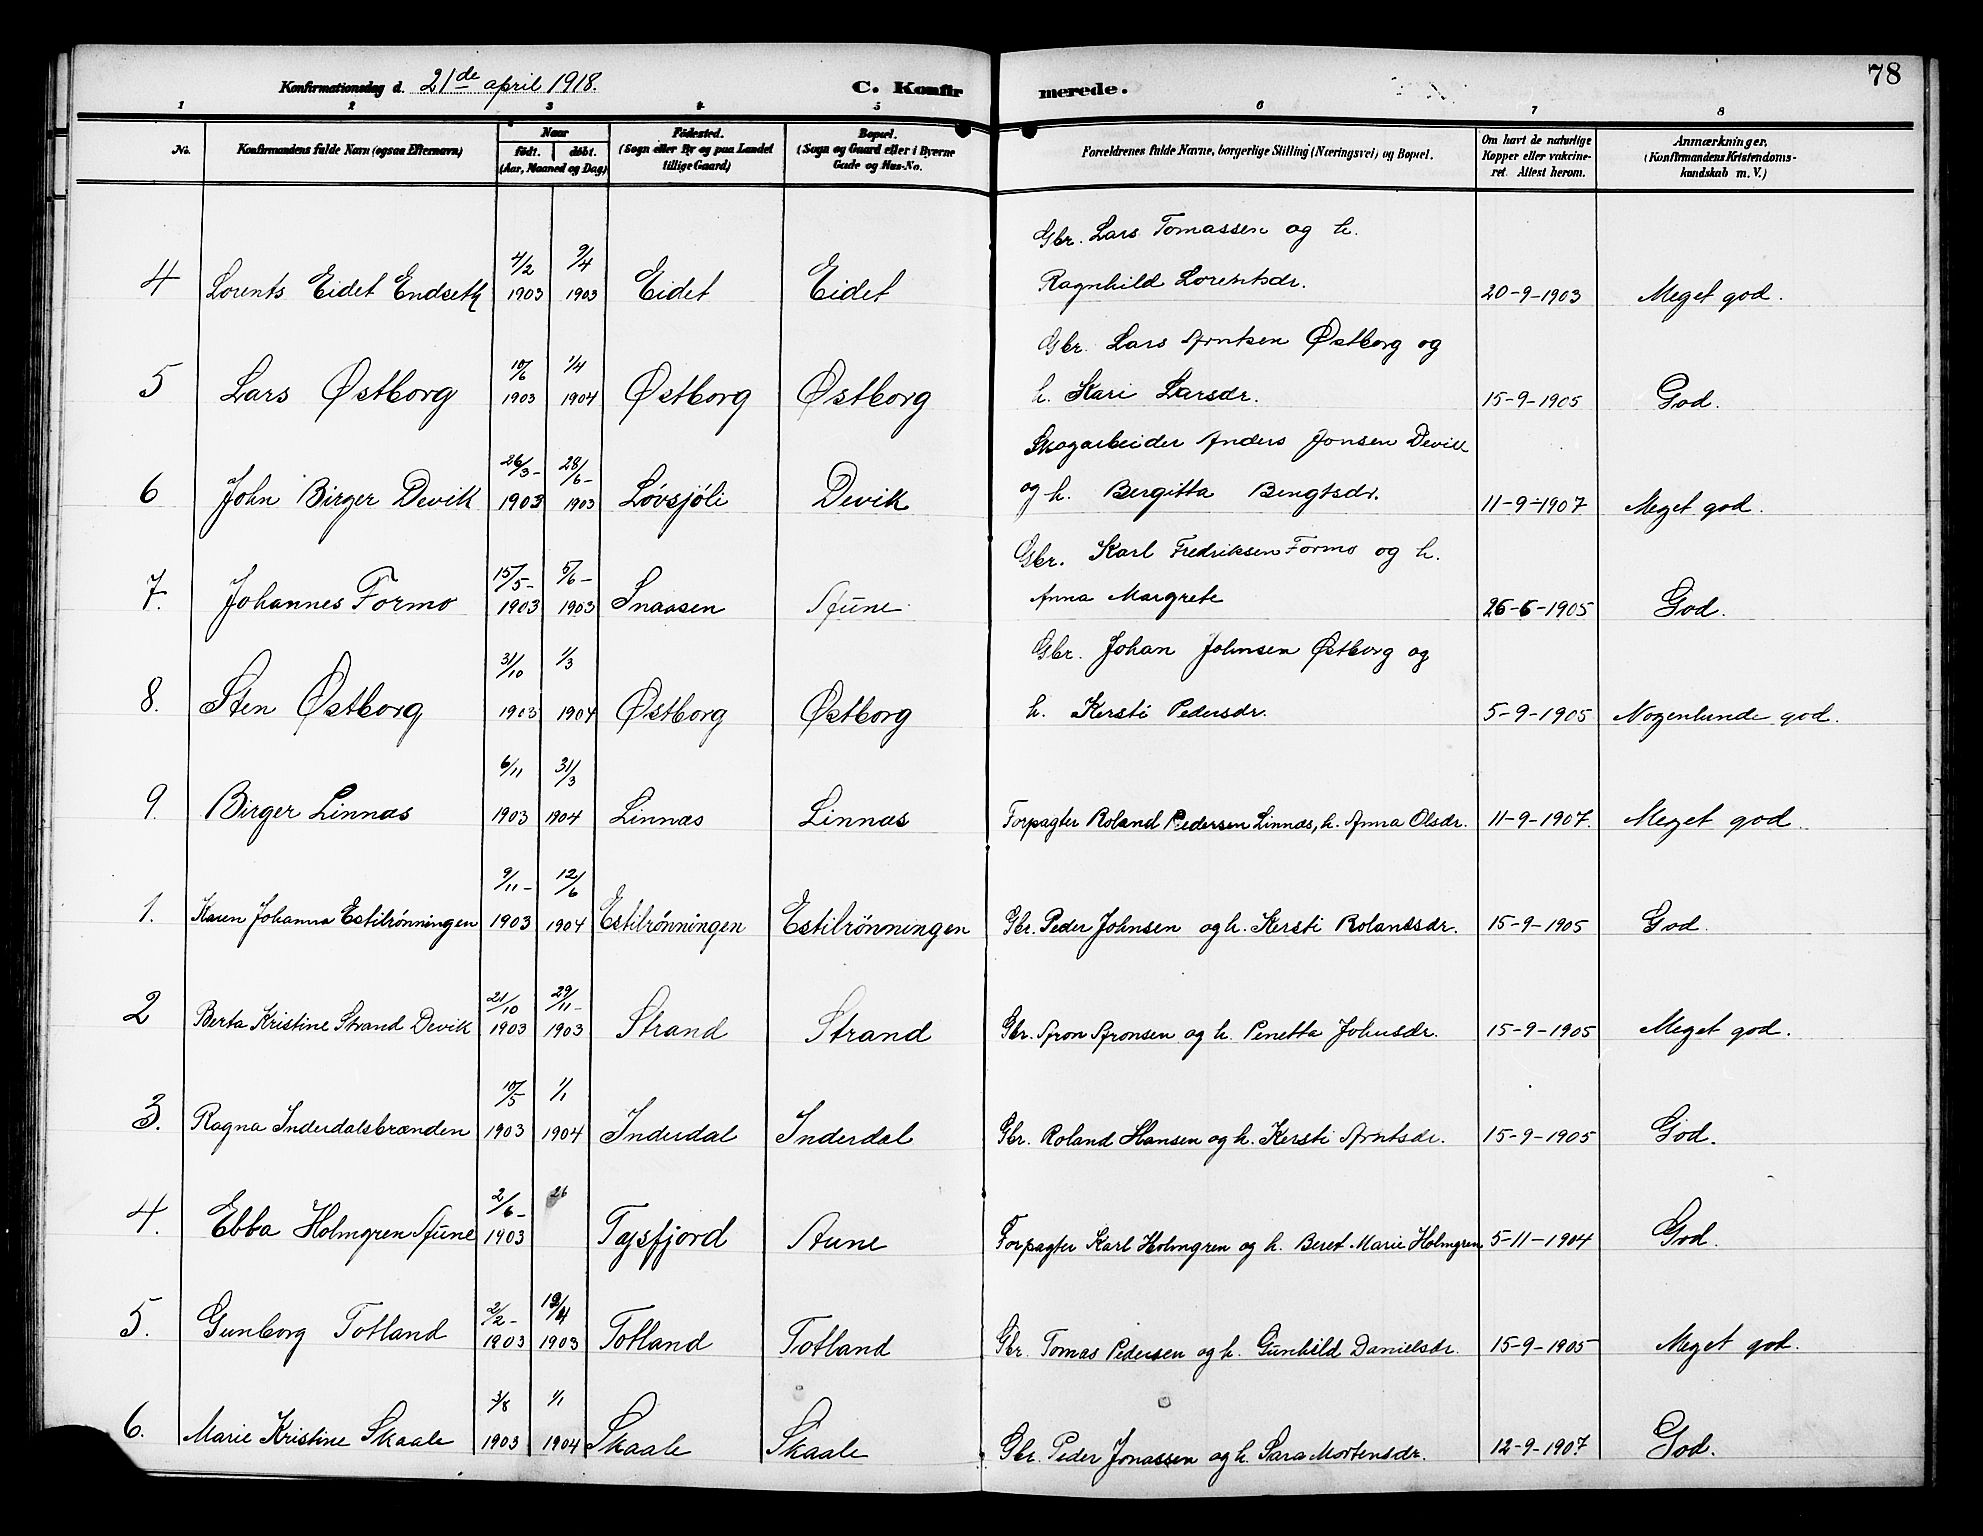 78
Konfirmationsdag d. 21de april 1918. C. Konfirmerede.
1 2 3 4 5 6 7 8
No. Konfirmandens fulde Navn (ogsaa Efternavn.) Naar født. døbt. (Aar, Maaned og Dag) Fødested. (Sogn eller By og paa Landet tillige Gaard) Bopæl. (Sogn og Gaard eller i Byerne Gade og Hus-No. Forældrenes fulde Navne, borgerlige Stilling (Næringsvei) og Bopæl. Om havt de naturlige Kopper eller vakcineret. Attest herom. Anmærkninger. (Konfirmandens Kristendomskundskab m. V.)
4 Lorents Eidet Endseth 4/2 1903 9/4 1903 Eidet Eidet Gbr. Lars Tomassen og h. Ragnhild Lorentsdr. 20-9-1903 Meget god.
5 Lars Østborg 10/6 1903 1/4 1904 Østborg Østborg Gbr. Lars Arntsen Østborg og h. Kari Larsdr. 15-9-1905 God.
6 John Birger Devik 26/3- 1903 28/6- 1903 Løvsjøli Devik Skogarbeider Anders Jonsen Devik og h. Bergitta Bengtsdr. 11-9-1907 Meget god.
7. Johannes Formo 15/5- 1903 5/6- 1903 Snaasen Aune Gbr. Karl Fredriksen Formo og h. Anna Margrete 26-6-1905 God.
8. Sten Østborg 31/10 1903 1/3 1904 Østborg Østborg Gbr. Johan Johnsen Østborg og h. Kersti Pedersdr. 5-9-1905 Nogenlunde god.
9. Birger Linnæs 6/11 1903 31/3 1904 Linnæs Linnæs Forpagter Roland Pedersen Linnæs, h. Anna Olsdr. 11-9-1907. Meget god.
1. Karen Johanna Estilrønningen 9/11- 1903 12/6 1904 Estilrønningen Estilrønningen Gbr. Peder Johnsen og h. Kersti Rolandsdr. 15-9-1905 God.
2 Berta Kristine Strand Devik 21/10 1903 29/11- 1903 Strand Strand Gbr. Aron Aronsen og h. Penetta Johnsdr. 15-9-1905 Meget god.
3. Ragna Inderdalsbrænden 10/5 1903 1/1 1904 Inderdal Inderdal Gbr. Roland Hansen og h. Kersti Arntsdr. 15-9-1905 God.
4. Ebba Holmgren Aune 2/6- 1903 26 Tysfjord Aune Forpagter Karl Holmgren og h. Beret Marie Holmgren 5-11-1904 God.
5. Gunborg Totland 2/2- 1903 1903 Totland Totland Gbr. Tomas Pedersen og h. Gunhild Danielsdr. 15-9-1905 Meget god.
6. Marie Kristine Skaale 3/8 1903 1/1 1904 Skaale Skaale Gbr. Peder Jonassen og h. Sara Mortensdr. 12-9-1907 God.